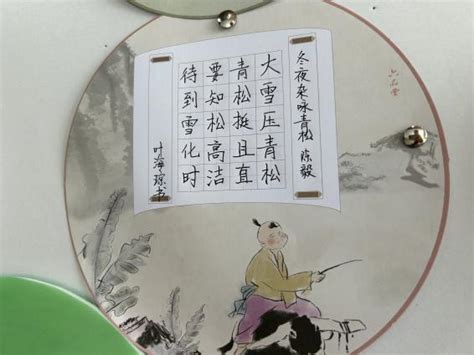 冬夜杂咏青松 陈毅
大雪压青松
青松挺且直
要知松高洁
待到雪化时
叶海琛书